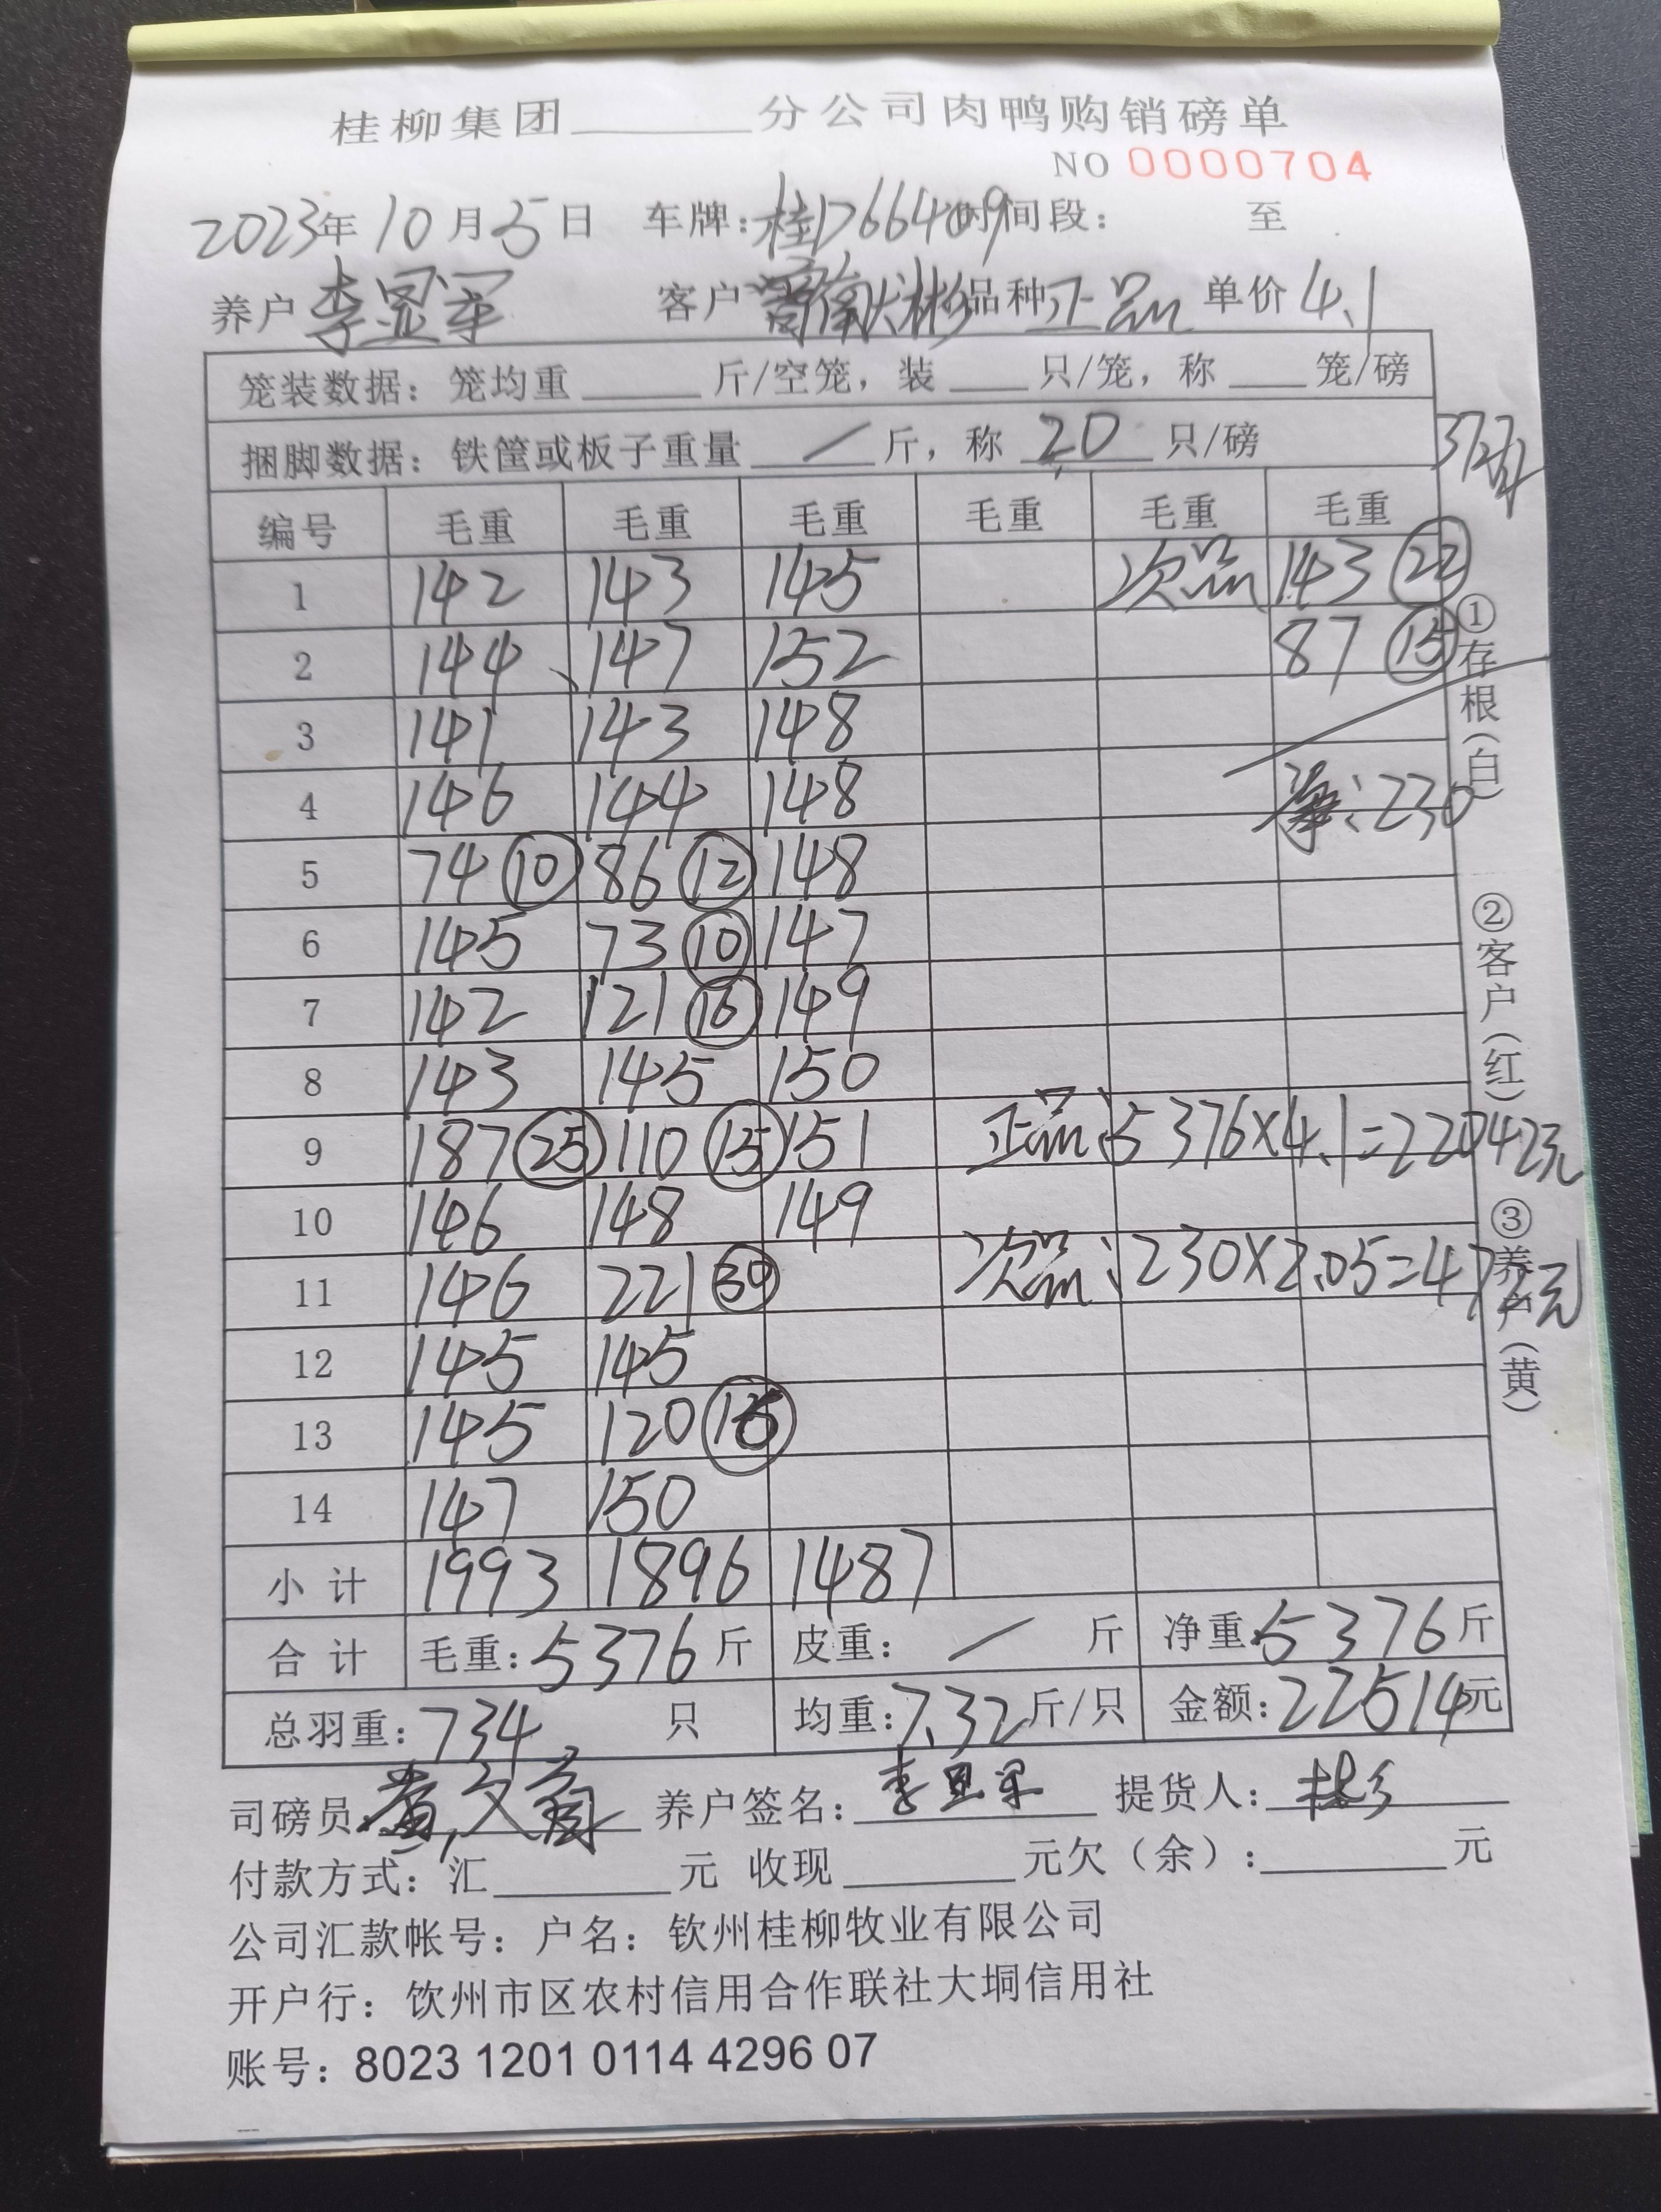 桂柳集团______分公司肉鸭购销磅单
NO 0000704
2023年10月5日 车牌:桂D66409时间段: 至
养户 李显军 客户 品种 正品 单价 4.1
笼装数据:笼均重______斤/空笼,装___只/笼,称___笼/磅
捆脚数据:铁筐或板子重量 / 斤,称 20 只/磅
37只
编号 毛重 毛重 毛重 毛重 毛重 毛重
1 142 143 145 次品 143 (22)
2 144 、147 152 87 (15)
3 141 143 148
4 146 144 148 净:230
5 74 (10) 86 (12) 148
6 145 73 (10) 147
7 142 121 (16) 149
8 143 145 150
9 187 (25) 110 (15) 151 正品:5376×4.1=22042元
10 146 148 149
11 146 221 (30) 次品:230×2.05=472元
12 145 145
13 145 120 (16)
14 147 150
小计 1993 1896 1487
合计 毛重:5376斤 皮重: / 斤 净重:5376斤
总羽重:734 只 均重:7.32斤/只 金额:22514元
司磅员: 养户签名:李显军 提货人:
付款方式:汇______元 收现______元欠(余):______元
公司汇款帐号:户名:钦州桂柳牧业有限公司
开户行:饮州市区农村信用合作联社大垌信用社
账号:8023 1201 0114 4296 07
①存根(白) ②客户(红) ③养户(黄)